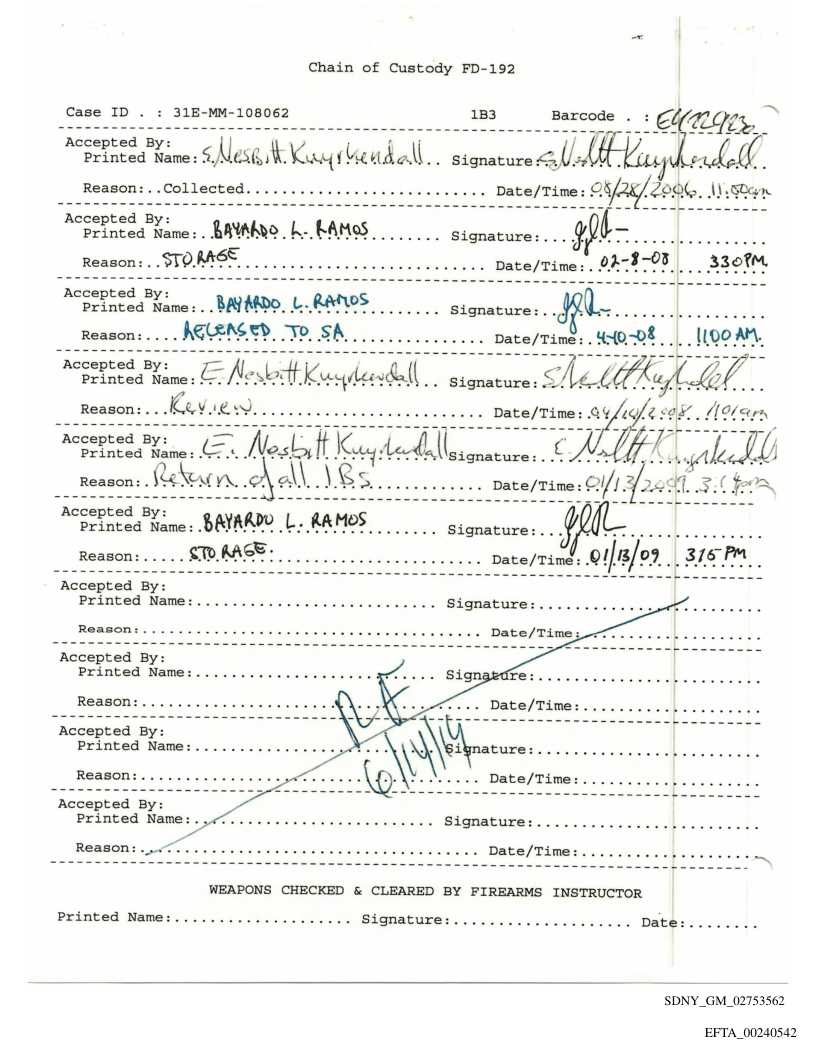 Chain of Custody FD-192
Case ID . : 31E-MM-108062 1B3 Barcode . : E4122923
Accepted By:
Printed Name: E. Nesbitt Kuyrkendall.. Signature: E. Nesbitt Kuyrkendall..
Reason:..Collected................................ Date/Time: 08/28/2006 11:50am
Accepted By:
Printed Name:. BAYARDO L. RAMOS ........ Signature:...
Reason:.. STORAGE ................................ Date/Time:. 02-8-08 330PM
Accepted By:
Printed Name:.. BAYARDO L. RAMOS Signature:...
Reason:.... RELEASED TO SA ................... Date/Time:. 4-10-08 1100 AM.
Accepted By:
Printed Name: E. Nesbitt Kuyrkendall.. Signature:
Reason:... Review ................................ Date/Time: 04/10/2008 1101am
Accepted By:
Printed Name: E. Nesbitt Kuyrkendall Signature:... E. Nesbitt Kuyrkendall
Reason:. Return of all 1Bs ................ Date/Time: 01/13/2009 3:14pm
Accepted By:
Printed Name:. BAYARDO L. RAMOS Signature:...
Reason:..... STORAGE. ........................ Date/Time: 01/13/09 315 PM
Accepted By:
Printed Name:........................... Signature:.........................
Reason:................................... Date/Time:....................
Accepted By:
Printed Name:........................... Signature:.........................
Reason:................................... Date/Time:....................
Accepted By:
Printed Name:........................... Signature:.........................
6/14/14
Reason:................................... Date/Time:....................
Accepted By:
Printed Name:........................... Signature:.........................
Reason:................................... Date/Time:....................
WEAPONS CHECKED & CLEARED BY FIREARMS INSTRUCTOR
Printed Name:................... Signature:.................... Date:........
SDNY_GM_02753562
EFTA_00240542